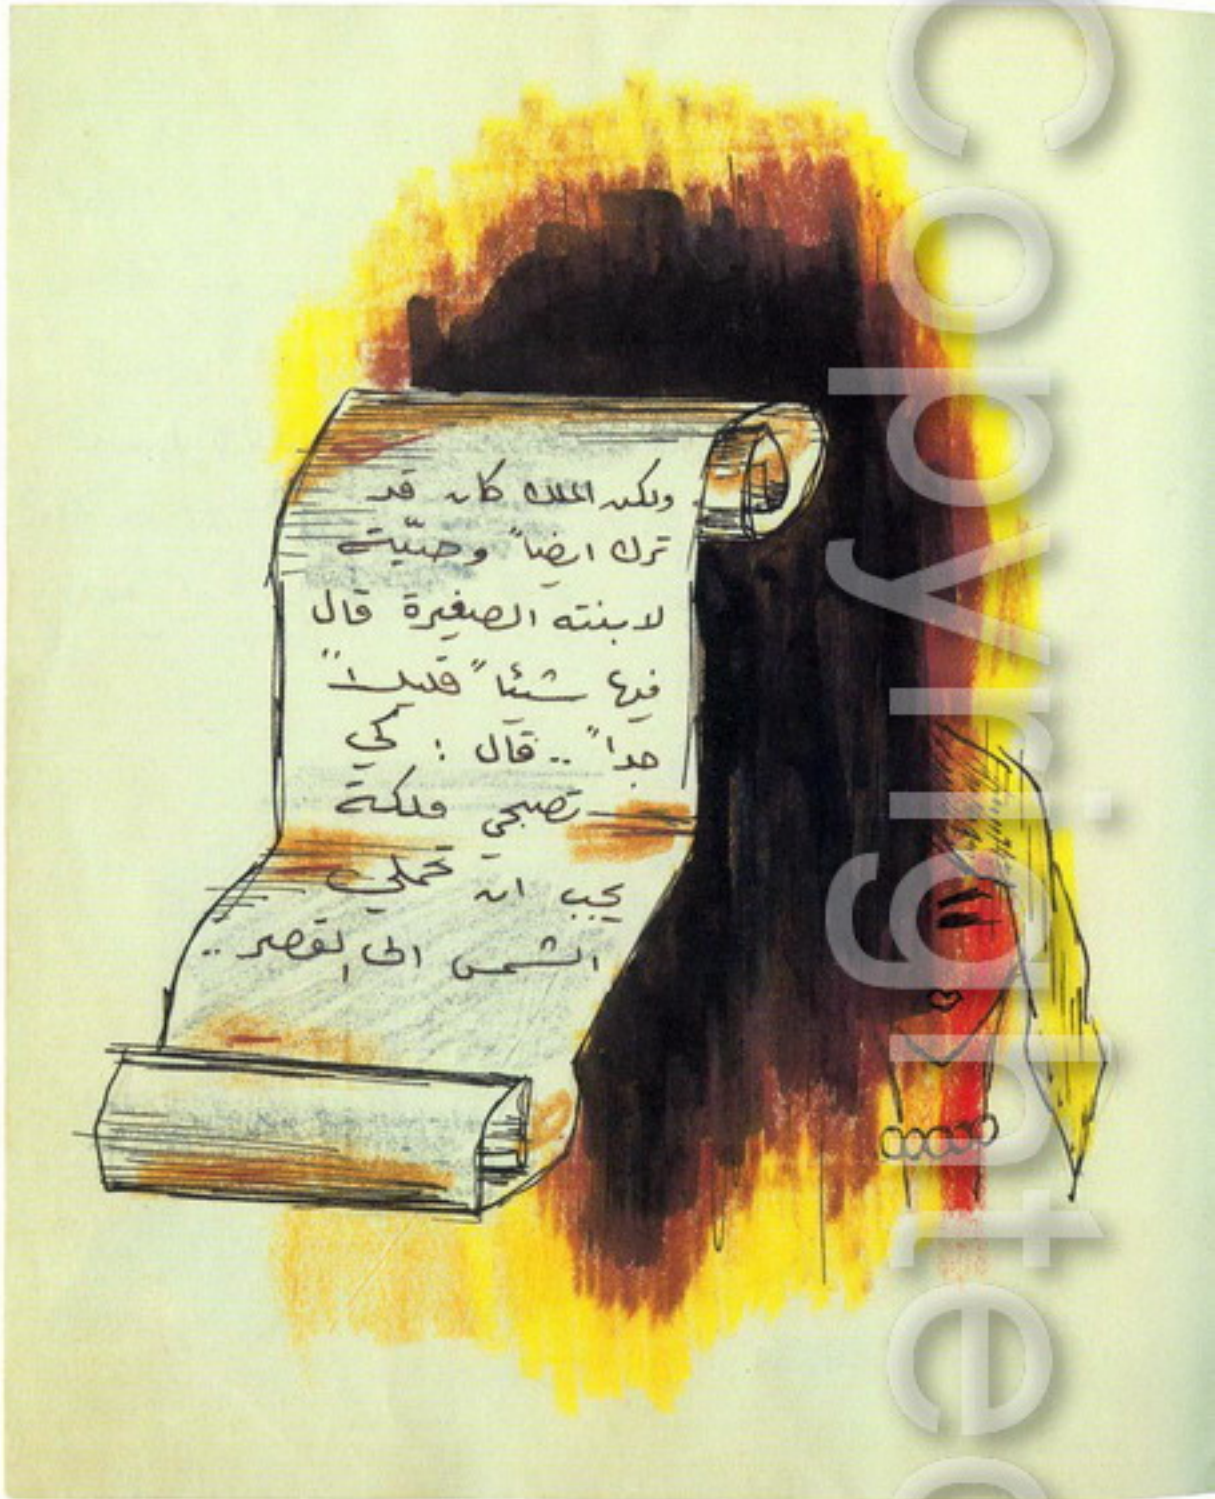 ولكن الملك كان قد
ترك ايضاً وصيّة
لابنته الصغيرة قال
فيها شيئاً قليلاً
جداً .. قال : كي
تصبحي ملكة
يجب ان تحملي
الشمس الى القصر ..
Copyrighted